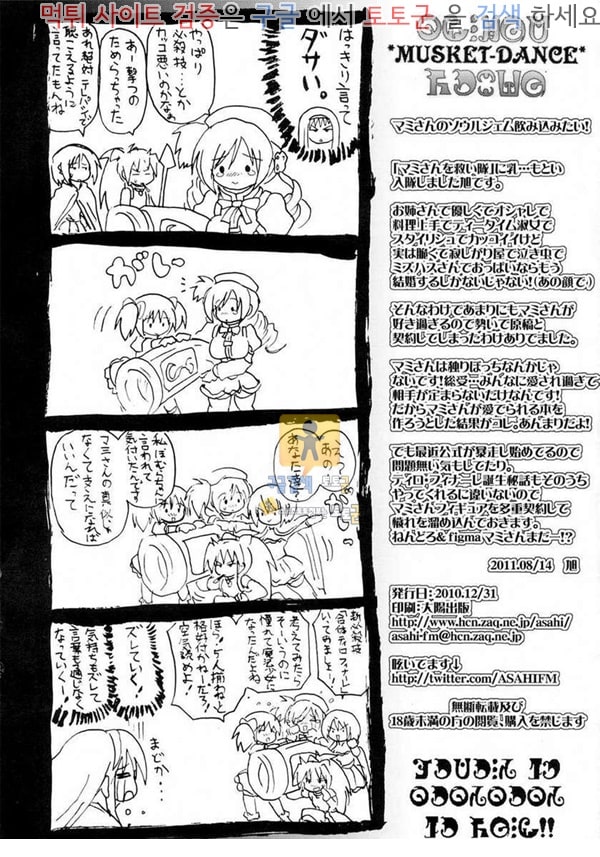 먹튀 사이트 검증은 구글 에서 토토군 을 검색 하세요
*MUSKET-DANCE*
マミさんのソウルジェム飲み込みたい!
「マミさんを救い隊」に乳…もとい
入隊しました旭です。
お姉さんで優しくてオシャレで
料理上手でティータイム淑女で
スタイリシュでカッコイイけど
実は脆くて寂しがり屋で泣き虫で
ミズハスさんでおっぱいならもう
結婚するしかないじゃない!(あの顔で)
そんなわけであまりにもマミさんが
好き過ぎるので勢いで原稿と
契約してしまったわけありてました。
マミさんは独りぼっちなんかじゃ
ないです!総受…みんなに愛され過ぎて
相手が定まらないだけなんです!
だからマミさんが愛でられる本を
作ろうとした結果がコレ。あんまりだよ!
でも最近公式が暴走し始めてるので
問題無い気もしてたり。
ティロ・フィナーレ誕生秘話もそのうち
やってくれるに違いないので
マミさんフィギュアを多重契約して
穢れを溜め込んでおきます。
ねんどろ&figmaマミさんまだー!?
2011.08/14 旭
発行日:2010.12/31
印刷:大陽出版
http://www.hcn.zaq.ne.jp/asahi/
asahi-fm@hcn.zaq.ne.jp
呟いてます↓
http://twitter.com/ASAHIFM
無断転載及び
18歳未満の方の閲覧、購入を禁じます
はっきり言って
ダサい。
やっぱり
必殺技…とか
カッコ悪いのかなぁ
あー撃つの
ためらっちゃった
あれ絶対テレパシーで
聴こえるように
言ってたもんね
がしっ
えっ
あの
あなた達?
がしっ
私ほむらちゃんに
言われて
気付いたんです!
マミさんの真似じゃ
なくてきえになれば
いいんだって
新必殺技
「合体ティロ・フィナーレ」で
いってみましょう!
考えてみたら
そーいうのに
憧れて魔法少女に
なったんだよね
ほら!5人揃ねと
格好付かねーだろ!
空気読めよ!
ズレていく!
気持ちもズレて
言葉も通じなく
なっていく!
まどか…